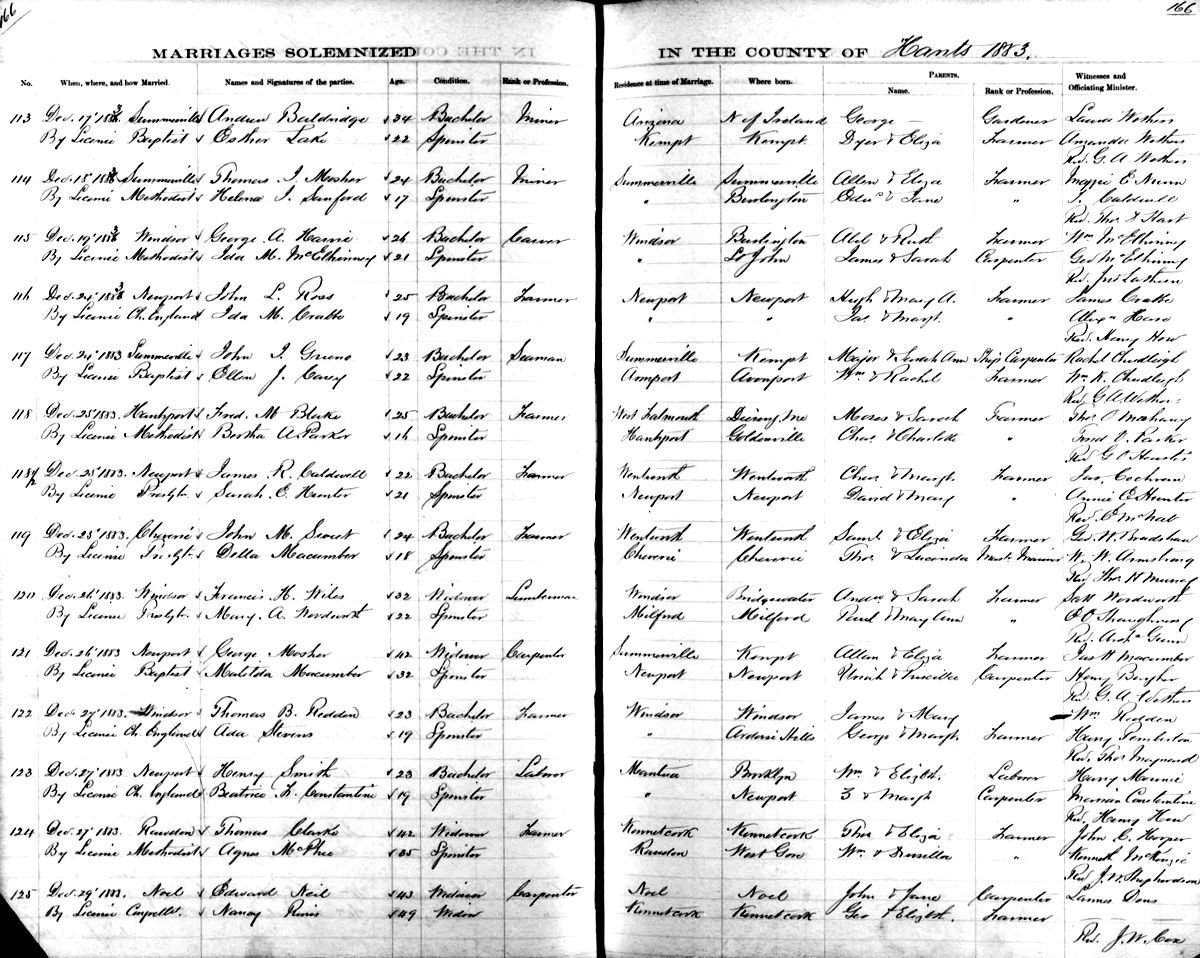 166
166
MARRIAGES SOLEMNIZED IN THE COUNTY OF Hants 1883.
No. When, where, and how Married. Names and Signatures of the parties. Age. Condition. Rank or Profession. Residence at time of Marriage. Where born. PARENTS. Name. Rank or Profession. Witnesses and Officiating Minister.
113 Dec. 17' 1883 Summerville Andrew Baldridge 34 Bachelor Miner Arizona N of Ireland George — Gardener Laura Wethers
By Licence Baptist Esther Lake 22 Spinster Kempt Kempt Dyer & Eliza Farmer Amanda Wethers
Rev. G. A. Wethers
114 Dec. 18' 1883 Summerville Thomas I. Mosher 24 Bachelor Miner Summerville Summerville Allen & Eliza Farmer Maggie E. Nunn
By Licence Methodist Helena I. Sanford 17 Spinster " Burlington Edw. & Jane " I. Caldwell
Rev. Thos. D. Hart
115 Dec. 19' 1883 Windsor George A. Harvie 26 Bachelor Carver Windsor Burlington Abel & Ruth Farmer Wm. McElhinney
By Licence Methodist Ida M. McElhinney 21 Spinster " St John James & Sarah Carpenter Geo. McElhinney
Rev. Jno. Lathern
116 Dec. 24' 1883 Newport John L. Ross 25 Bachelor Farmer Newport Newport Hugh & Mary A. Farmer James Crabbe
By Licence Ch. England Ida M. Crabbe 19 Spinster " " Jas. & Margt. " Alexr.
Rev. Henry How
117 Dec. 24' 1883 Summerville John I. Greeno 23 Bachelor Seaman Summerville Kempt Major & Sarah Ann Ship Carpenter Rachel Chudleigh
By Licence Baptist Ellen J. Carey 22 Spinster Avonport Wm. & Rachel Farmer Wm. K. Chudleigh
Rev. G. A. Wethers
118 Dec. 25' 1883. Hantsport Fred. M. Blake 25 Bachelor Farmer West Falmouth Me Moses & Sarah Farmer Thos. O
By Licence Methodist Bertha A. Parker 16 Spinster Hantsport Goldenville Chas. & Charlotte " Fred V. Parker
Rev. G. O. Huestis
118½ Dec. 25' 1883. Newport James R. Caldwell 22 Bachelor Farmer Wentworth Wentworth Chas. & Margt. Farmer Jas. Cochran
By Licence Presbytn. Sarah E. Hunter 21 Spinster Newport Newport David & Mary " Annie E. Hunter
Rev. E. McNab
119 Dec. 25' 1883. Cheverie John M. Sweet 24 Bachelor Farmer Wentworth Wentworth Saml. & Eliza Farmer Geo. W. Bradshaw
By Licence Presbyt. Della Macumber 18 Spinster Cheverie Cheverie Thos. & Lucinda Mast. Mariner W. W. Armstrong
Rev. Thos. H. Murray
120 Dec. 26' 1883. Windsor Francis H. Wiles 32 Widower Lumberman Windsor Bridgewater Andw. & Sarah Farmer Wordworth
By Licence Presbytn. Mary. A. Wordworth 22 Spinster Milford Milford Paul & Mary Ann " O'Shaughnessy
Rev. Archd. Gunn
121 Dec. 26' 1883 Newport George Mosher 42 Widower Carpenter Summerville Kempt Allan & Eliza Farmer Jas. H. Macumber
By Licence Baptist Matilda Macumber 32 Spinster Newport Newport Uriah & Priscilla Carpenter Henry
Rev. G. A. Wethers
122 Dec. 27' 1883. Windsor Thomas B. Redden 23 Bachelor Farmer Windsor Windsor James & Mary Wm. Redden
By Licence Ch. England Ada Stevens 19 Spinster " Ardoise Hills George & Margt. Farmer Harry Pemberton
Rev. Thos Maynard
123 Dec. 27' 1883 Newport Henry Smith 23 Bachelor Laborer Mantua Brooklyn Wm. & Elizth. Laborer Harry Mounce
By Licence Ch. England Beatrice L. Constantine 19 Spinster " Newport & Margt Carpenter Marrian Constantine
Rev. Henry How
124 Dec. 27' 1883. Rawdon Thomas Clarke 42 Widower Farmer Kennetcook Kennetcook Thos & Eliza Farmer John C. Hooper
By Licence Methodist Agnes McPhee 35 Spinster Rawdon West Gore Wm. & Drusilla " Kenneth McKenzie
Rev. J. W. Shepherdson
125 Dec. 29' 1883. Noel Edward Neil 43 Widower Carpenter Noel Noel John & Jane Carpenter
By Licence Nancy 49 Widow Kennetcook Kennetcook Geo & Elizth. Farmer
Rev. J. W. Cox